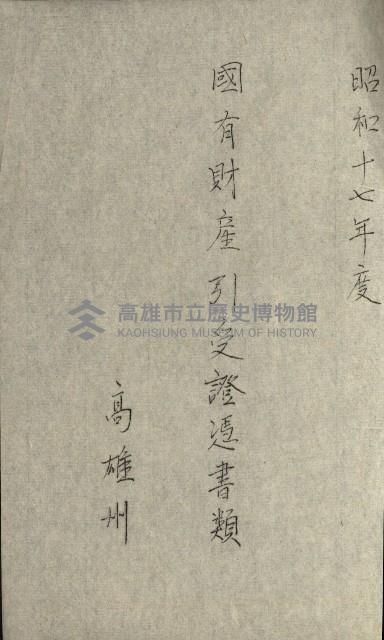 昭和十七年度
國有財產引受證憑書類
高雄州
高雄市立歷史博物館
KAOHSIUNG MUSEUM OF HISTORY